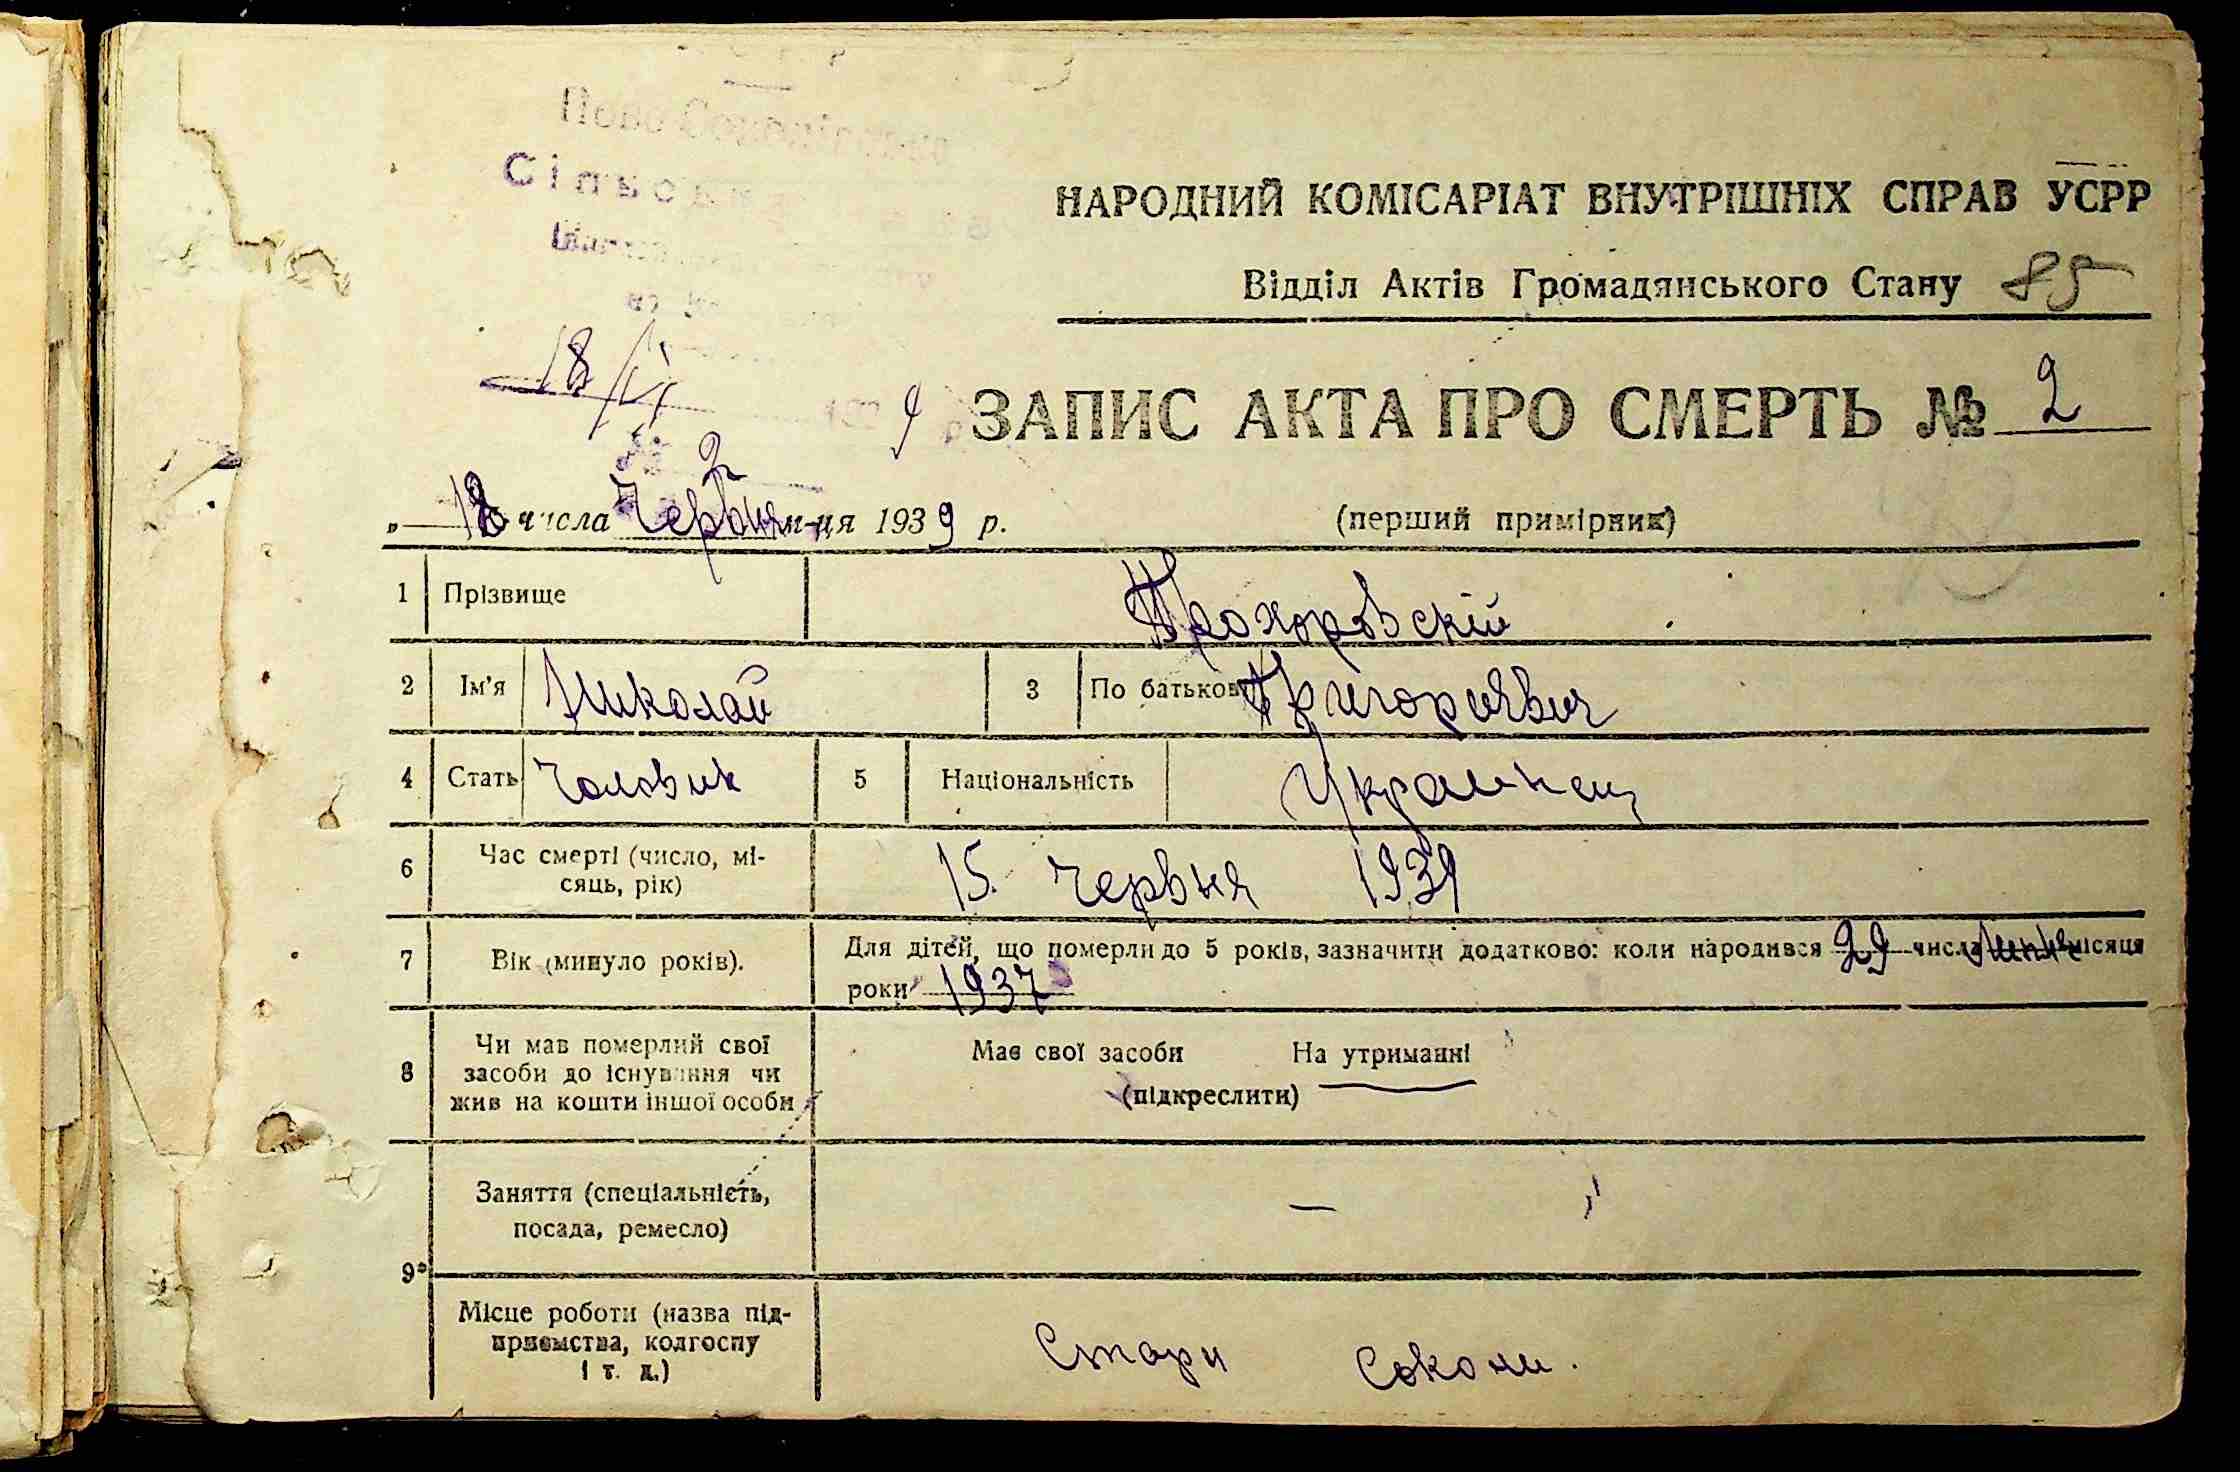 Сільськ
НАРОДНИЙ КОМІСАРІАТ ВНУТРІШНІХ СПРАВ УСРР
Відділ Актів Громадянського Стану 85
18/VI 9
ЗАПИС АКТА ПРО СМЕРТЬ № 2
№ 2
„ 18 числа Червня м-ця 1939 р.
(перший примірник)
1 Прізвище Прохоровскій
2 Ім'я Николай 3 По батькові Григориєвич
4 Стать Чоловик 5 Національність Украинец
6 Час смерті (число, мі-
сяць, рік) 15 Червня 1939
7 Вік (минуло років). Для дітей, що померли до 5 років, зазначити додатково: коли народився 29 числа місяця
роки 1937
8 Чи мав померлий свої
засоби до існування чи
жив на кошти іншої особи
Має свої засоби На утриманні
(підкреслити)
Заняття (спеціальність,
посада, ремесло) —
9
Місце роботи (назва під-
приємства, колгоспу
і т. д.) Стари Соколи.